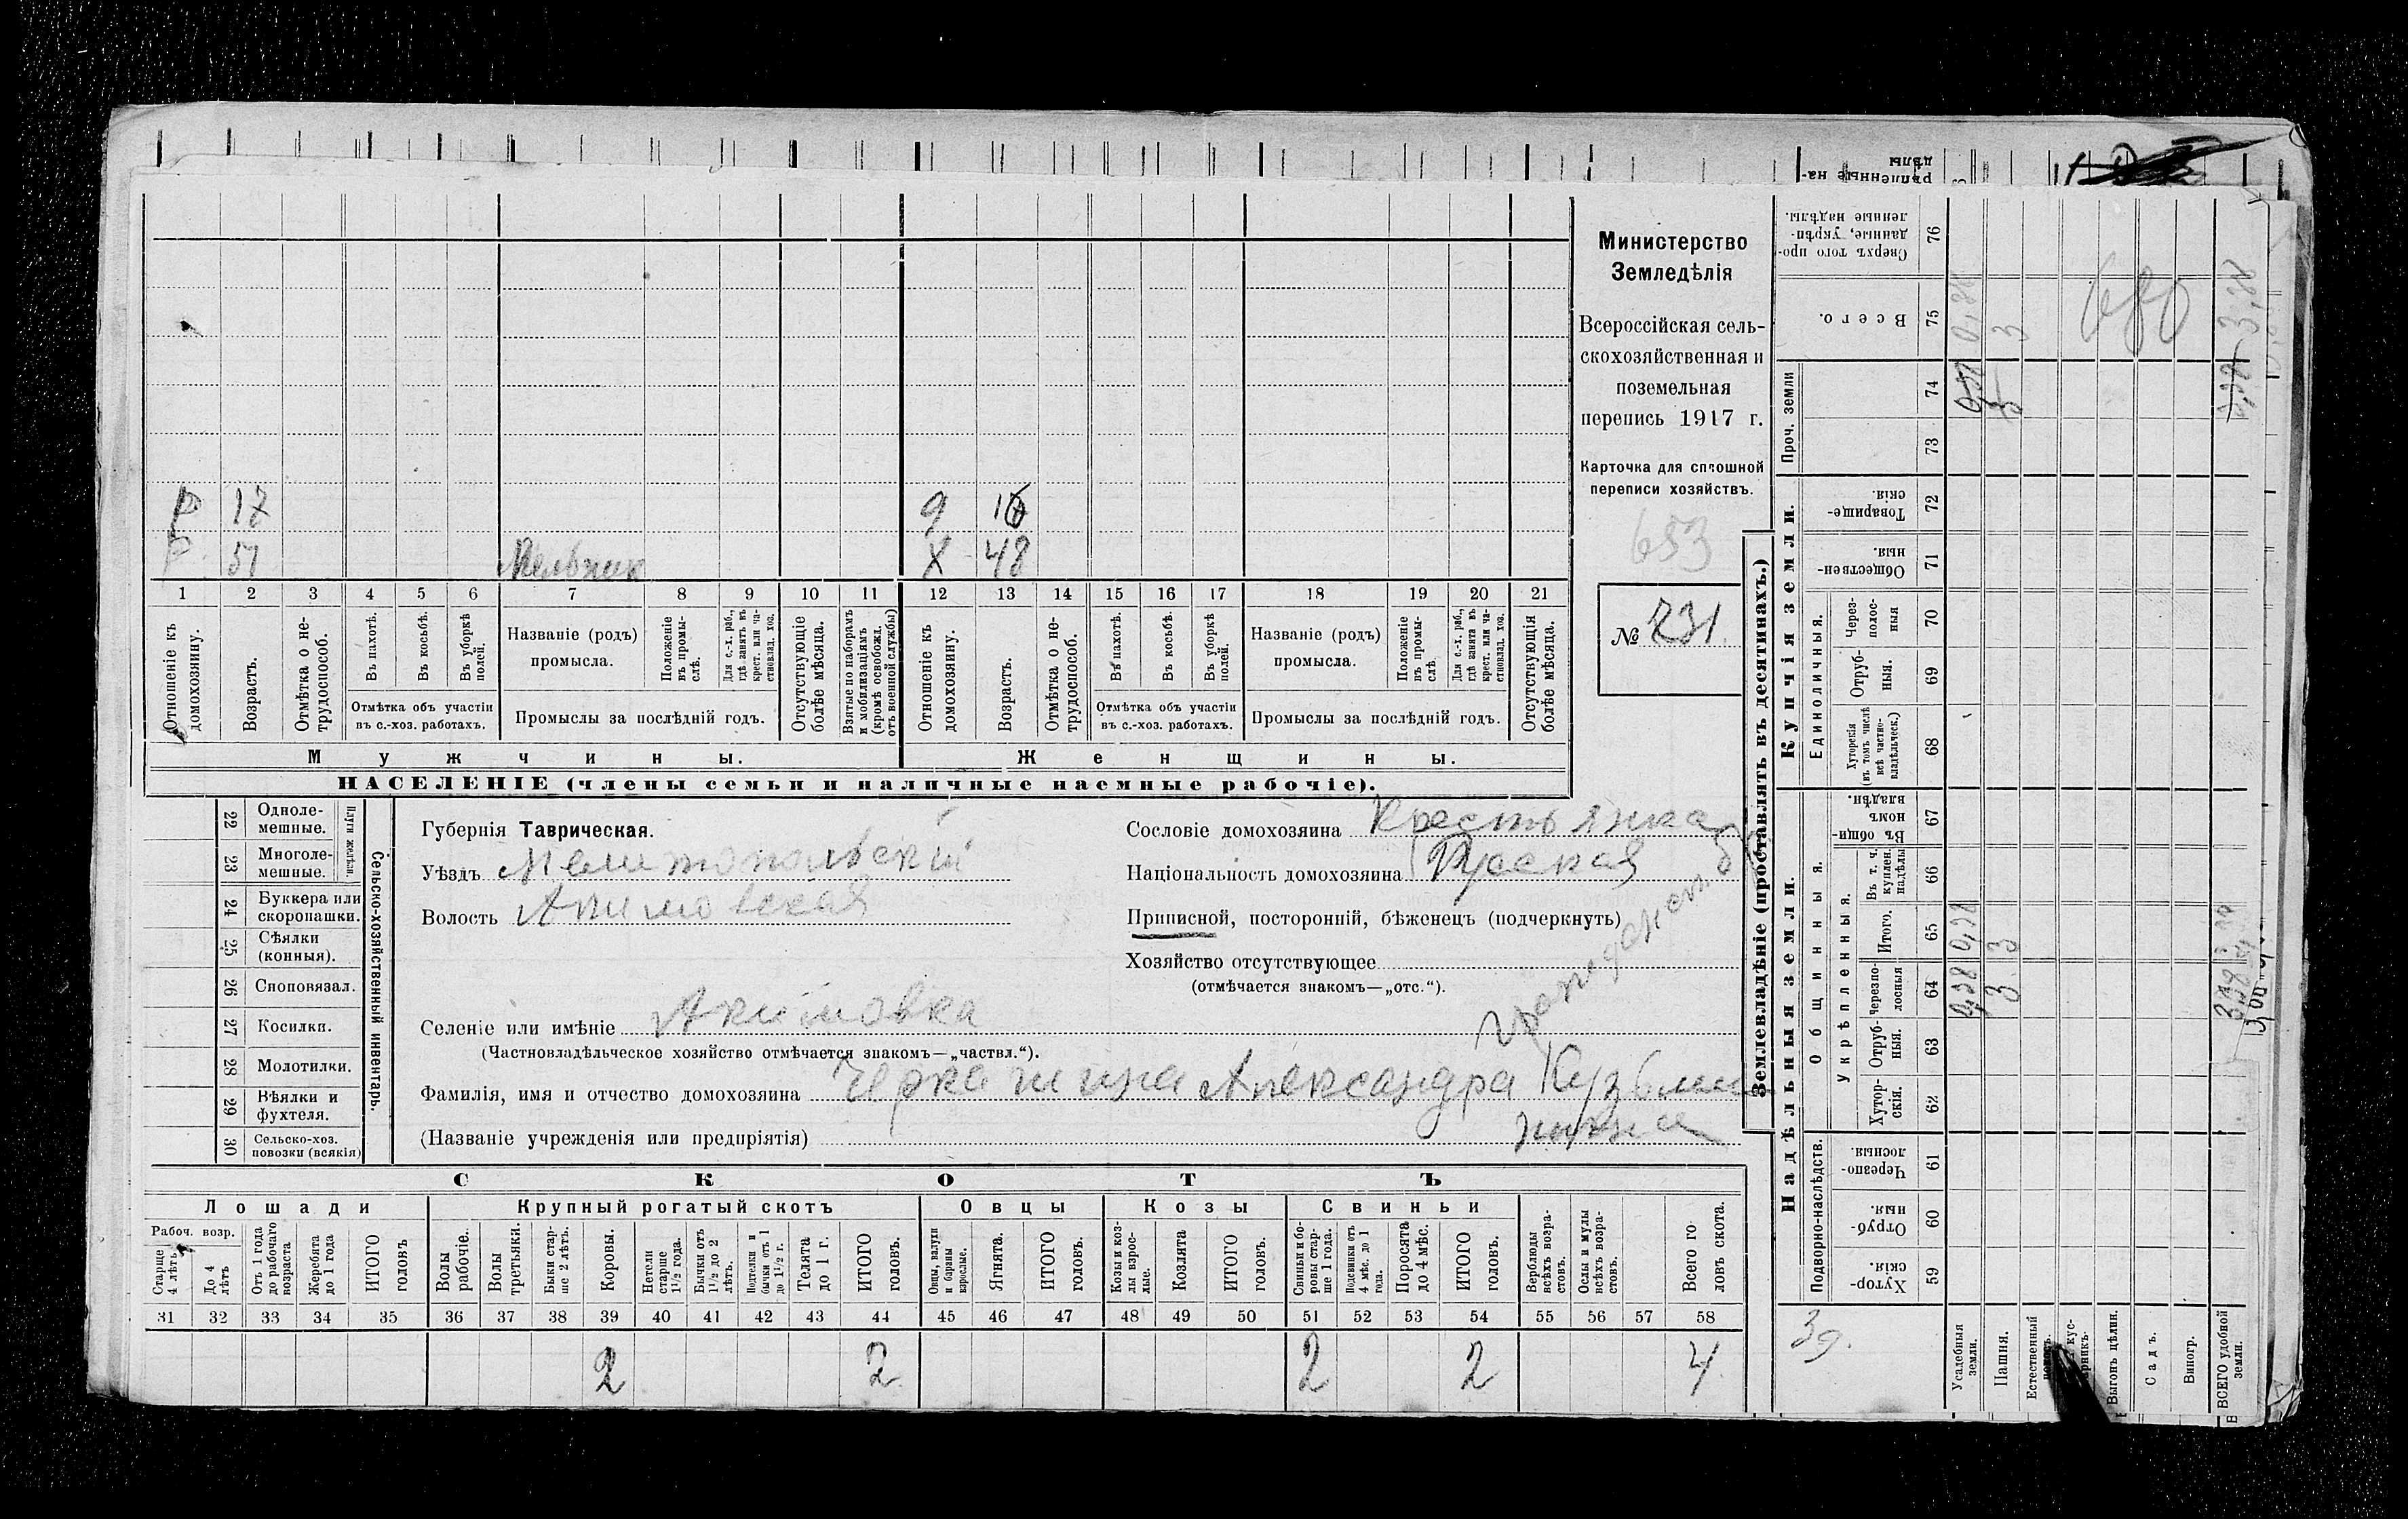 рѣпленные на-
дѣлы
Р 17
9 16
Р 51 Мельник
Х 48
1 2 3 4 5 6 7 8 9 10 11 12 13 14 15 16 17 18 19 20 21
Отношеніе къ домохозяину.
Возрастъ.
Отмѣтка о не-трудоспособ.
Въ пахотѣ.
Въ косьбѣ.
Въ уборкѣ полей.
Отмѣтка объ участіи
въ с.-хоз. работахъ.
Названіе (родъ)
промысла.
Положеніе въ промы-слѣ.
Для с.-х. раб., гдѣ занятъ въ крест. или ча-стновлад. хоз.
Промыслы за послѣдній годъ.
Отсутствующіе болѣе мѣсяца.
Взятые по наборамъ и мобилизаціямъ (кромѣ освобожд. отъ военной службы)
Отношеніе къ домохозяину.
Возрастъ.
Отмѣтка о не-трудоспособ.
Въ пахотѣ.
Въ косьбѣ.
Въ уборкѣ полей.
Отмѣтка объ участіи
въ с.-хоз. работахъ.
Названіе (родъ)
промысла.
Положеніе въ промы-слѣ.
Для с.-х. раб., гдѣ занята въ крест. или ча-стновлад. хоз.
Промыслы за послѣдній годъ.
Отсутствующія болѣе мѣсяца.
Мужчины.
Женщины.
НАСЕЛЕНІЕ (члены семьи и наличные наемные рабочіе).
Министерство
Земледѣлія
Всероссійская сель-
скохозяйственная и
поземельная
перепись 1917 г.
Карточка для сплошной
переписи хозяйствъ.
653
№ 231.
22 Одноле-мешные.
23 Многоле-мешные.
Плуги желѣзн.
24 Буккера или скоропашки.
25 Сѣялки (конныя).
26 Сноповязал.
27 Косилки.
28 Молотилки.
29 Вѣялки и фухтеля.
30 Сельско-хоз. повозки (всякія)
Сельско-хозяйственный инвентарь.
Губернія Таврическая.
Уѣздъ Мелитопольский
Волость Акимовская
Сословіе домохозяина Крестьянка
Національность домохозяина Русская
Приписной, посторонній, бѣженец (подчеркнуть)
Хозяйство отсутствующее
(отмѣчается знакомъ—„отс.“).
Селеніе или имѣніе Акимовка
(Частновладѣльческое хозяйство отмѣчается знакомъ—„частвл.“).
Фамилія, имя и отчество домохозяина Черкашина Александра Кузьми
(Названіе учрежденія или предпріятія) нична
СКОТЪ
Лошади
Крупный рогатый скотъ
Овцы
Козы
Свиньи
Рабоч. возр.
Старше 4 лѣтъ
До 4 лѣтъ
Отъ 1 года до рабочаго возраста
Жеребята до 1 года
ИТОГО головъ
Волы рабочіе.
Волы третьяки.
Быки стар-ше 2 лѣтъ.
Коровы.
Нетели старше 1½ года.
Бычки отъ 1½ до 2 лѣтъ.
Подтелки и бычки отъ 1 до 1½ г.
Телята до 1 г.
ИТОГО головъ.
Овцы, валухи и бараны взрослые.
Ягнята.
ИТОГО головъ.
Козы и коз-лы взрос-лые.
Козлята
ИТОГО головъ.
Свиньи и бо-ровы стар-ше 1 года.
Подсвинки отъ 4 мѣс. до 1 года.
Поросята до 4 мѣс.
ИТОГО головъ.
Верблюды всѣхъ возра-стовъ.
Ослы и мулы всѣхъ возра-стовъ.
Всего го ловъ скота.
31 32 33 34 35 36 37 38 39 40 41 42 43 44 45 46 47 48 49 50 51 52 53 54 55 56 57 58
2 2 2 2 4
Землевладѣніе (проставлять въ десятинахъ.)
Сверхъ того про-данные, укрѣп-ленные надѣлы. 76
Всего. 75 3
680
Проч. земли
74
73
Купчія земли.
Товарище-скія. 72
Обществен-ныя. 71
Единоличныя.
Через-полос-ныя 70
Отруб-ныя. 69
Хуторскія (въ томъ числѣ всѣ частно-владѣльческ.) 68
Надѣльныя земли.
Общинныя.
Въ общи-номъ владѣн. 67
Укрѣпленныя.
Въ т. ч. куплен. надѣлы 66
Итого. 65 0,38 3
Черезпо-лосныя 64 0,38 3
Отруб-ныя. 63
Хутор-скія. 62
Подворно-наслѣдств.
Черезпо-лосныя. 61
Отруб-ныя. 60
Хутор-скія. 59
39.
Усадебныя земли.
Пашня.
Естественный
Выгонъ цѣлин.
Садъ.
Виногр.
ВСЕГО удобной земли.
3,38